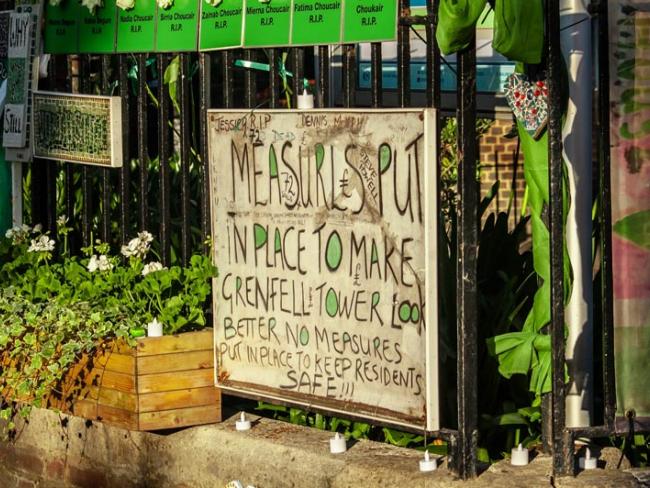 Nadia Choucair
R.I.P.
Sirria Choucair
R.I.P.
Zainab Choucair
R.I.P.
Mierna Choucair
R.I.P.
Fatima Choucair
R.I.P.
Choukair
R.I.P.
WHY
Still
JESSICA R.I.P DENNIS
DEAD
72
MEASURES PUT
IN PLACE TO MAKE
GRENFELL TOWER LOOK
BETTER NO MEASURES
PUT IN PLACE TO KEEP RESIDENTS
SAFE!!!